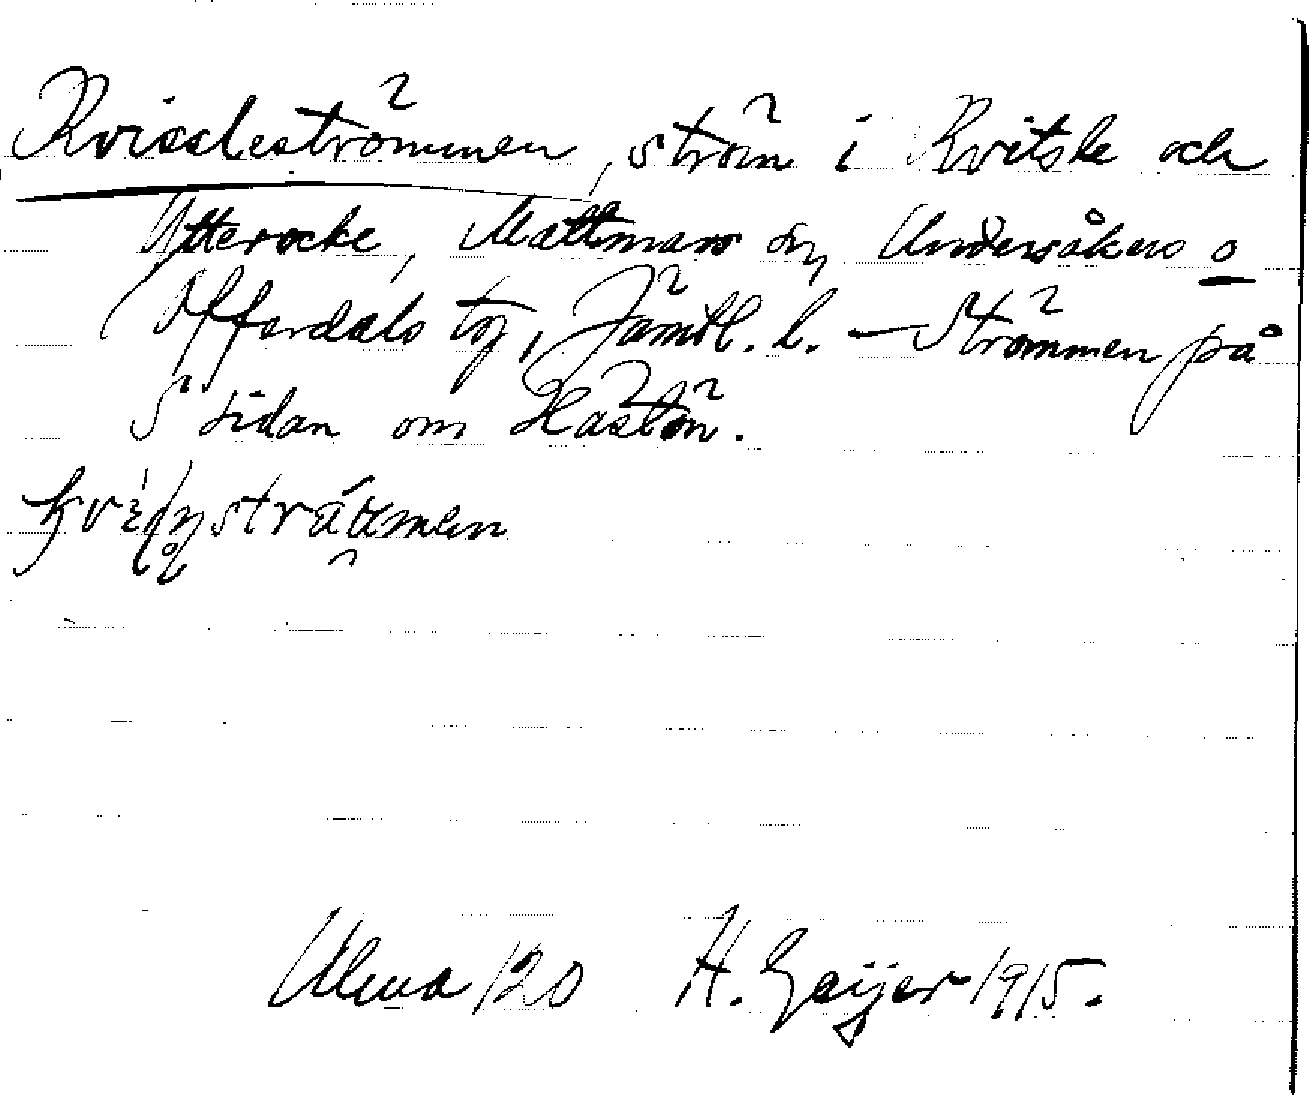 Kvissleströmmen, ström i Kvitsle och
Ytterocke, Mattmars sn, Undersåkers o
Offerdals tg, Jämtl. l. – Strömmen på
S sidan om Hästön.
Ulma 120 H. Geijer 1915.